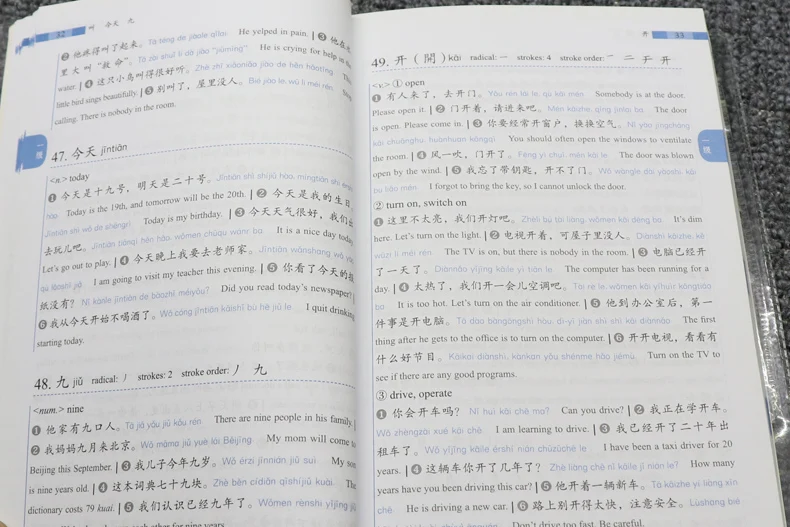 32 叫 今天 九
❷ 他疼得叫了起来。Tā téng de jiàole qǐlai He yelped in pain. | ❸ 他在水
里大叫“救命”。Tā zài shuǐ lǐ dà jiào “jiùmìng” He is crying for help in the
water. | ❹ 这只小鸟叫得很好听。Zhè zhī xiǎoniǎo jiào de hěn hǎotīng The
little bird sings beautifully. | ❺ 别叫了，屋里没人。Bié jiào le, wū lǐ méi rén Stop
calling. There is nobody in the room.
一级
47. 今天 jīntiān
<n.> today
❶ 今天是十九号，明天是二十号。Jīntiān shì shíjiǔ hào, míngtiān shì èrshí
hào Today is the 19th, and tomorrow will be the 20th. | ❷ 今天是我的生日。
Jīntiān shì wǒ de shēngri Today is my birthday. | ❸ 今天天气很好，我们出
去玩儿吧。Jīntiān tiānqì hěn hǎo, wǒmen chūqù wánr ba It is a nice day today.
Let's go out to play. | ❹ 今天晚上我要去老师家。Jīntiān wǎnshang wǒ yào
qù lǎoshī jiā I am going to visit my teacher this evening. | ❺ 你看了今天的报
纸没有？Nǐ kànle jīntiān de bàozhǐ méiyǒu? Did you read today's newspaper? |
❻ 我从今天开始不喝酒了。Wǒ cóng jīntiān kāishǐ bù hē jiǔ le I quit drinking
starting today.
48. 九 jiǔ radical: 丿 strokes: 2 stroke order: 丿 九
<num.> nine
❶ 他家有九口人。Tā jiā yǒu jiǔ kǒu rén There are nine people in his family. |
❷ 我妈妈九月来北京。Wǒ māma jiǔ yuè lái Běijīng My mom will come to
Beijing this September. | ❸ 我儿子今年九岁。Wǒ érzi jīnnián jiǔ suì My son
is nine years old. | ❹ 这本词典七十九块。Zhè běn cídiǎn qīshíjiǔ kuài The
dictionary costs 79 kuai. | ❺ 我们认识已经九年了。Wǒmen rènshi yǐjīng jiǔ
each other for nine years
开 33
49. 开（開）kāi radical: 一 strokes: 4 stroke order: 一 二 于 开
<v.> ① open
❶ 有人来了，去开门。Yǒu rén lái le, qù kāi mén Somebody is at the door.
Please open it. | ❷ 门开着，请进来吧。Mén kāizhe, qǐng jìnlai ba The door
is open. Please come in. | ❸ 你要经常开窗户，换换空气。Nǐ yào jīngcháng
kāi chuānghu, huànhuan kōngqì You should often open the windows to ventilate
the room. | ❹ 风一吹，门开了。Fēng yì chuī, mén kāi le The door was blown
open by the wind. | ❺ 我忘了带钥匙，开不了门。Wǒ wàngle dài yàoshi, kāi
bu liǎo mén I forgot to bring the key, so I cannot unlock the door.
一级
② turn on, switch on
❶ 这里不太亮，我们开灯吧。Zhèli bú tài liàng, wǒmen kāi dēng ba It's dim
here. Let's turn on the light. | ❷ 电视开着，可屋子里没人。Diànshì kāizhe, kě
wūzi li méi rén The TV is on, but there is nobody in the room. | ❸ 电脑已经开
了一天了。Diànnǎo yǐjīng kāile yì tiān le The computer has been running for a
day. | ❹ 太热了，我们开一会儿空调吧。Tài rè le, wǒmen kāi yíhuìr kōngtiáo
ba It is too hot. Let's turn on the air conditioner. | ❺ 他到办公室后，第一
件事是开电脑。Tā dào bàngōngshì hòu, dì-yī jiàn shì shì kāi diànnǎo The first
thing after he gets to the office is to turn on the computer. | ❻ 开开电视，看看有
什么好节目。Kāikai diànshì, kànkan yǒu shénme hǎo jiémù Turn on the TV to
see if there are any good programs.
③ drive, operate
❶ 你会开车吗？ Nǐ huì kāi chē ma? Can you drive? | ❷ 我正在学开车。
Wǒ zhèngzài xué kāi chē I am learning to drive. | ❸ 我已经开了二十年出
租车了。Wǒ yǐjīng kāile èrshí nián chūzūchē le I have been a taxi driver for 20
years. | ❹ 这辆车你开了几年了？ Zhè liàng chē nǐ kāile jǐ nián le? How many
years have you been driving this car? | ❺ 他开着一辆新车。Tā kāizhe yí liàng xīn
chē He is driving a new car. | ❻ 路上别开得太快，注意安全。Lùshang bié
Don't drive too fast. Be careful.